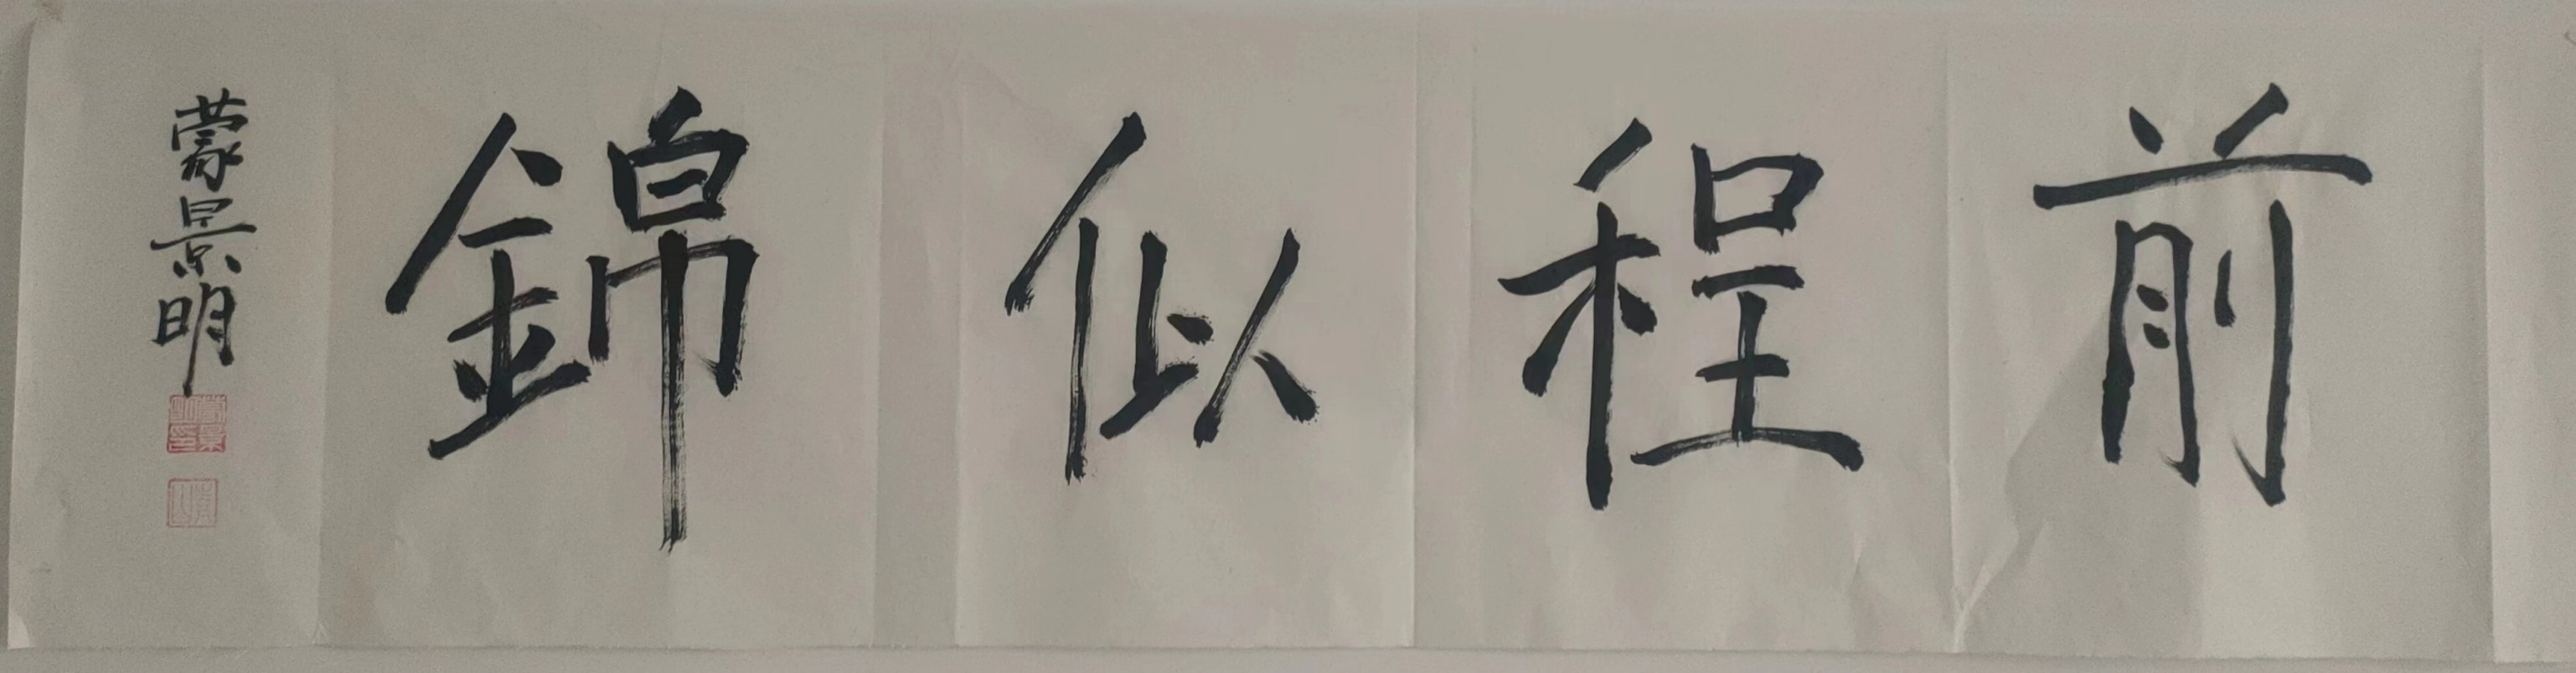 前程似錦
蒙景明